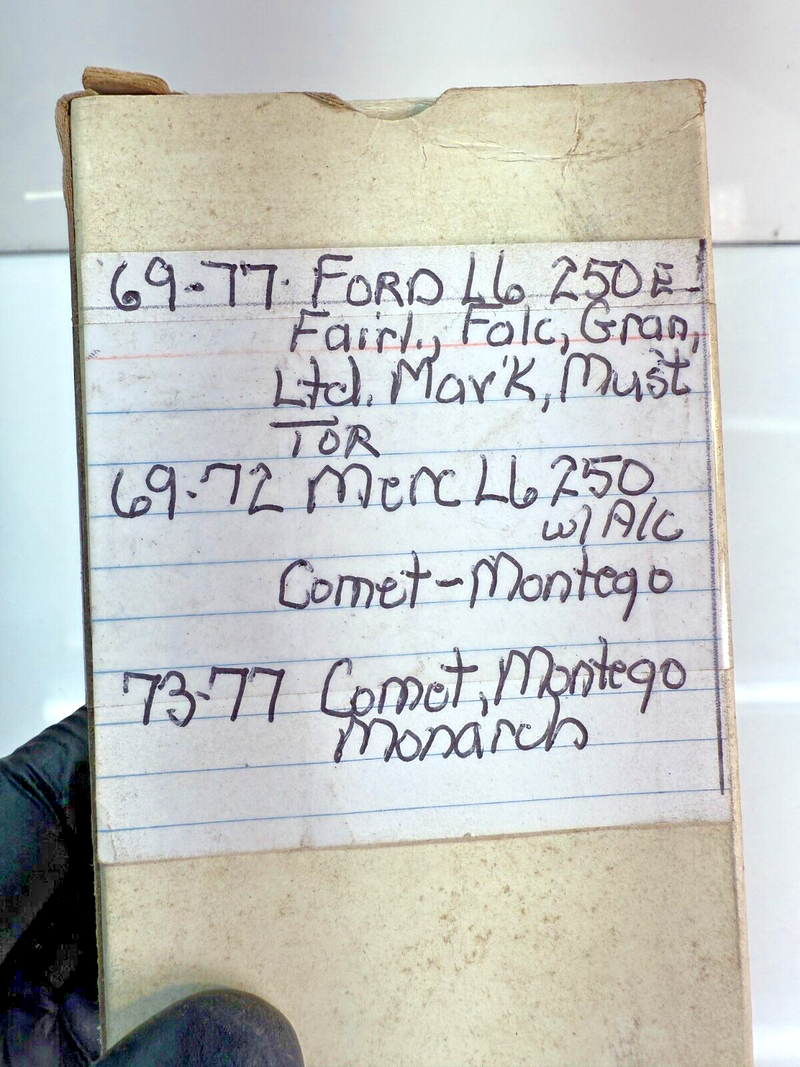 69-77 FORD L6 250 E
Fairl., Falc, Gran,
Ltd. Mav'K, Must
TOR
69-72 Merc L6 250
w/ A/C
Comet-Montego
73-77 Comet, Montego
Monarch